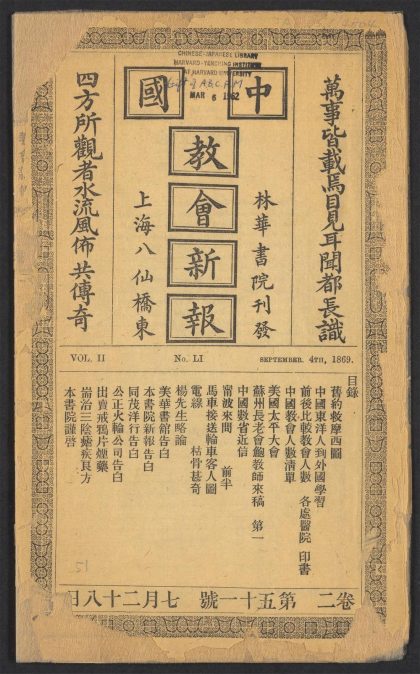 CHINESE-JAPANESE LIBRARY
HARVARD-YENCHING INSTITUTE
AT HARVARD UNIVERSITY
MAR 6 1962
中國
教
會
新
報
萬事皆載焉目見耳聞都長識
四方所觀者水流風佈共傳奇
林華書院刊發
上海八仙橋東
VOL. II
No. LI
SEPTEMBER. 4TH, 1869.
目錄
舊約救摩西圖
中國東洋人到外國學習
前後比較教會人數 各處醫院 印書
中國教會人數清單
美國太平大會
蘇州長老會鮑教師來稿 第一
中國數省近信
甯波來問 前半
馬車接送輪車客人圖
電線 枯骨甚奇
楊先生略論
美華書館告白
本書院新報告白
同茂洋行告白
公正火輪公司告白
出賣戒鴉片煙藥
崙冶三陰瘧疾良方
本書院謹啓
51
卷二 第五十一號 七月二十八日